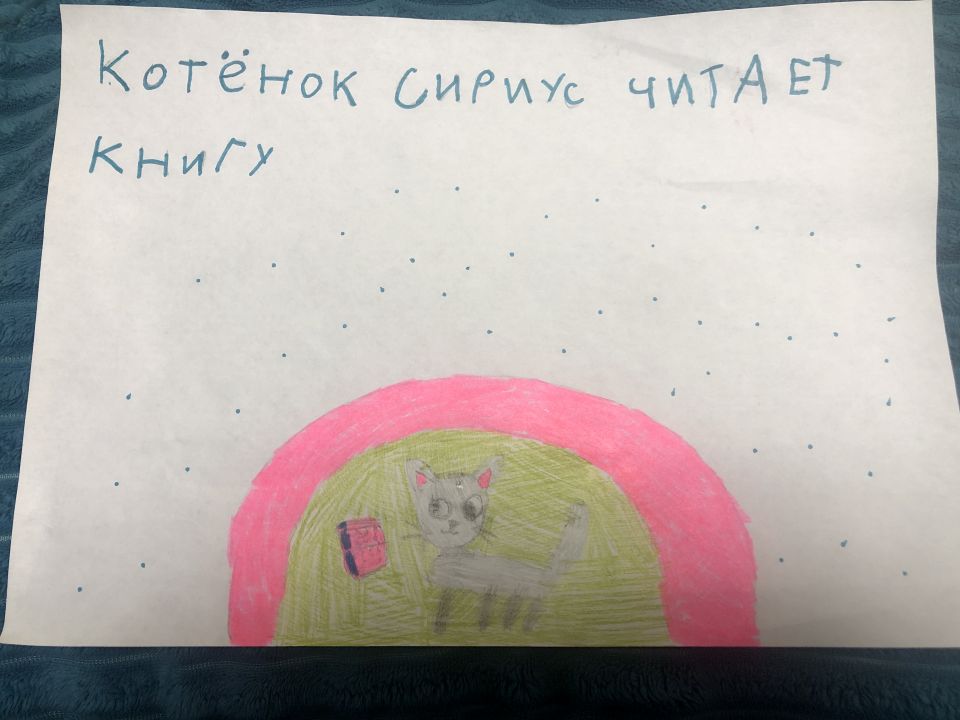 Котёнок Сириус читАЕТ
книгу